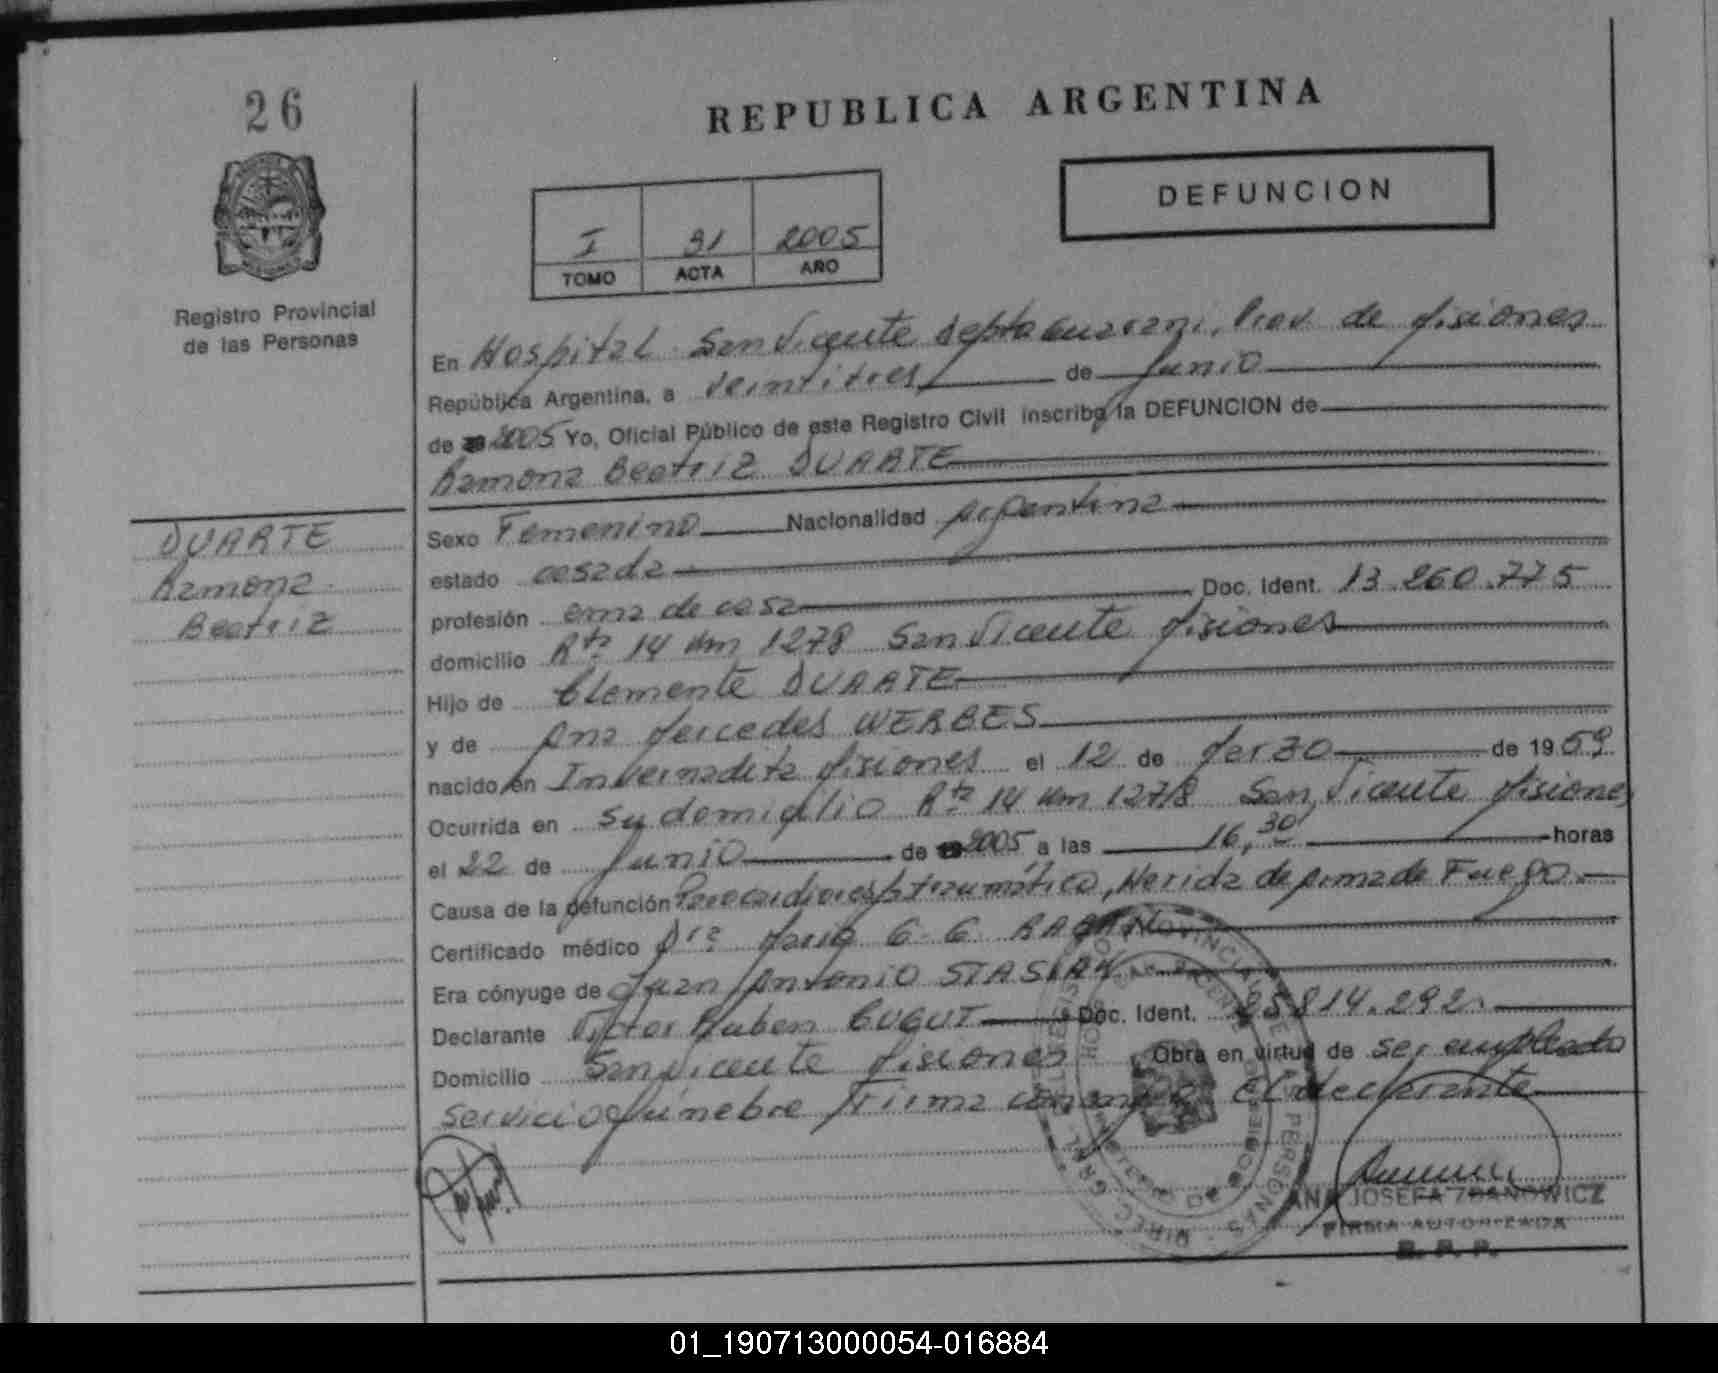 26
REPUBLICA ARGENTINA
DEFUNCION
I 31 2005
TOMO ACTA AÑO
Registro Provincial
de las Personas
En Hospital San Vicente Depto Guarani, Prov. de Misiones
República Argentina, a veintitres de Junio
de 2005 Yo, Oficial Público de este Registro Civil inscribo la DEFUNCION de
Ramona Beatriz DUARTE
DUARTE
Ramona
Beatriz
Sexo Femenino Nacionalidad Argentina
estado casada
profesión ama de casa Doc. Ident. 13.260.775
domicilio Rta 14 Km 1278 San Vicente Misiones
Hijo de Clemente DUARTE
y de Ana Mercedes WERBES
nacido en Invernadita Misiones el 12 de Marzo de 1959
Ocurrida en su domicilio Rta 14 Km 1278 San Vicente Misiones
el 22 de Junio de 2005 a las 16,30 horas
Causa de la defunción Paro cardioresp. traumático, Herida de Arma de Fuego.
Certificado médico Dra Maria G. G.
Era cónyuge de Juan Antonio
Declarante Victor Ruben CUGUT Doc. Ident. 25.814.292.
Domicilio San Vicente Misiones Obra en virtud de ser empleado
servicio fúnebre Firma el declarante
ANA JOSEFA ZDANOWICZ
FIRMA AUTORIZADA
R. P. P.
01_190713000054-016884